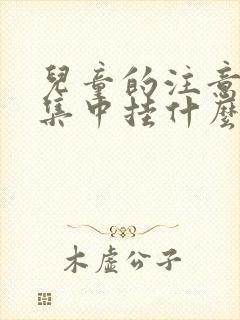 兒童的注意
集中挂什麼
木虛公子